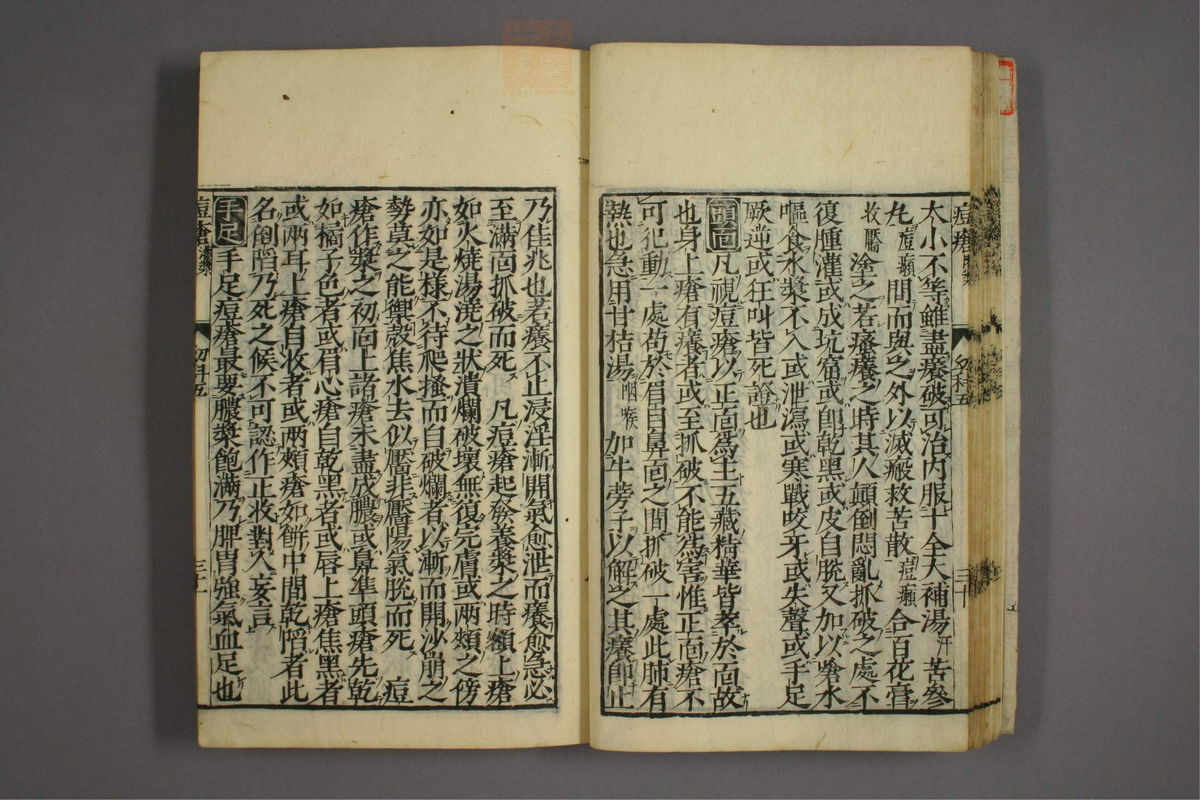 痘瘡 幼科五 三十
太小不等雖盡癢破可治內服十全大補湯汗苦參
丸痘癩間而與之外以滅瘢救苦散痘癩合百花膏
收靨塗之若瘙癢之時其人顛倒悶亂抓破之處不
復腫灌或成坑窟或即乾黑或皮自脫又加以嗆水
嘔食水漿不入或泄瀉或寒戰咬牙或失聲或手足
厥逆或狂叫皆死證也
頭面凡視痘瘡以正面爲主五藏精華皆萃於面故
也身上瘡有癢者或至抓破不能爲害惟正面瘡不
可犯動一處苟於眉目鼻面之間抓破一處此肺有
熱也急用甘桔湯咽喉加牛蒡子以解之其癢即止
乃佳兆也若癢不止浸淫漸開氣愈泄而癢愈急必
至滿面抓破而死 凡痘瘡起發養漿之時額上瘡
如火燒湯澆之狀潰爛破壞無復完膚或兩頰之傍
亦如是樣不待爬搔而自破爛者以漸而開沙崩之
勢莫之能禦殼焦水去似靨非靨陽氣脫而死 痘
瘡作漿之初面上諸瘡未盡成膿或鼻準頭瘡先乾
如橘子色者或眉心瘡自乾黑者或唇上瘡焦黑者
或兩耳上瘡自收者或兩頰瘡如餅中間乾惛者此
名倒陷乃死之候不可認作正收對人妄言
手足手足痘瘡最要膿漿飽滿乃脾胃強氣血足也
痘瘡 幼科五 三十一